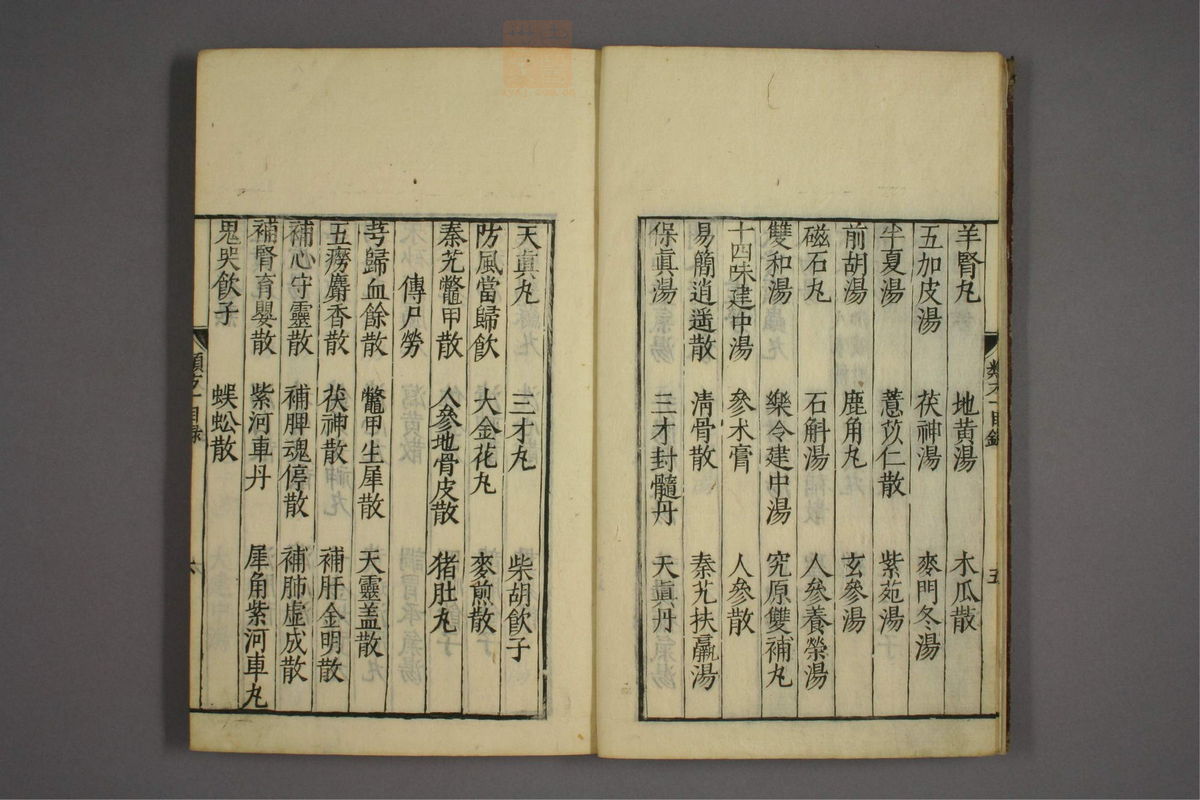 羊腎丸 地黄湯 木瓜散
五加皮湯 茯神湯 麥門冬湯
半夏湯 薏苡仁散 紫苑湯
前胡湯 鹿角丸 玄參湯
磁石丸 石斛湯 人參養榮湯
雙和湯 樂令建中湯 究原雙補丸
十四味建中湯 參朮膏 人參散
易簡逍遥散 清骨散 秦艽扶羸湯
保眞湯 三才封髓丹 天眞丹
五
天眞丸 三才丸 柴胡飲子
防風當歸飲 大金花丸 麥煎散
秦艽鼈甲散 人參地骨皮散 猪肚丸
傳尸勞
芎歸血餘散 鼈甲生犀散 天靈盖散
五癆麝香散 茯神散 補肝金明散
補心守靈散 補脾魂停散 補肺虚成散
補腎育嬰散 紫河車丹 犀角紫河車丸
鬼哭飲子 蜈蚣散